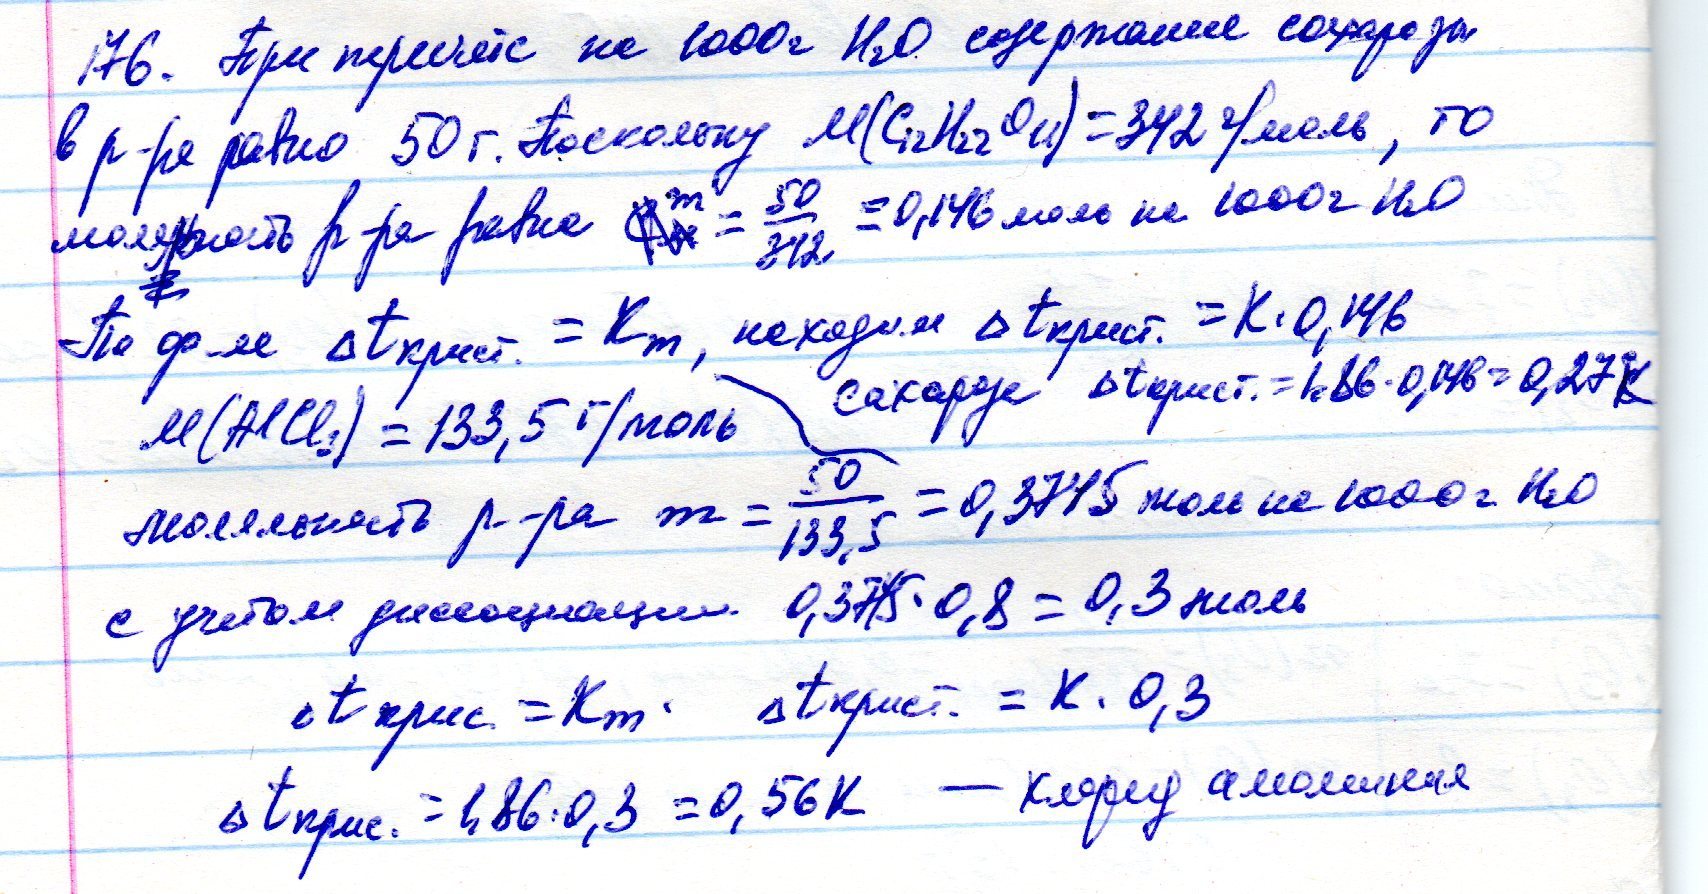 176. При перичетс на 1000г H₂O содержание сахарозы
в р-ре равно 50 г. Поскольку M(C₁₂H₂₂O₁₁) = 342 г/моль, то
моляльность р-ра равна m = 50/342 = 0,146 моль на 1000г H₂O
По ф-ле Δtкрист. = Km, находим Δtкрист. = K · 0,146
сахароза Δtкрист. = 1,86 · 0,146 = 0,27 K
M(AlCl₃) = 133,5 г/моль
моляльность р-ра m = 50/133,5 = 0,3745 моль на 1000г H₂O
с учетом диссоциации 0,3745 · 0,8 = 0,3 моль
Δt крис. = Km · Δtкрист. = K · 0,3
Δtкрис. = 1,86 · 0,3 = 0,56 K — хлорид алюминия